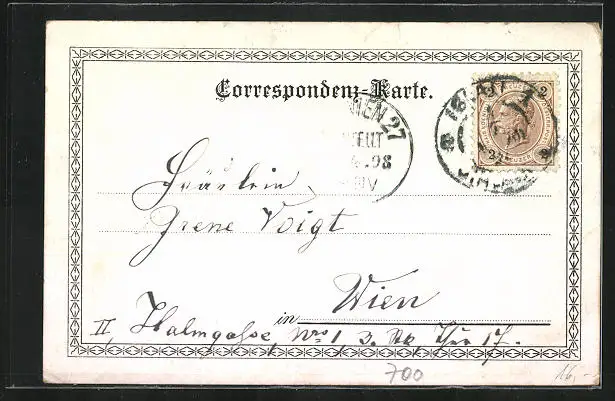 Correspondenz-Karte.
2 2
WIEN 27
BESTELLT
98
Fräulein
Irene Voigt
in Wien
II, Halmgasse, Nro 1, 3. Stk, Thür 17.
700
16,-